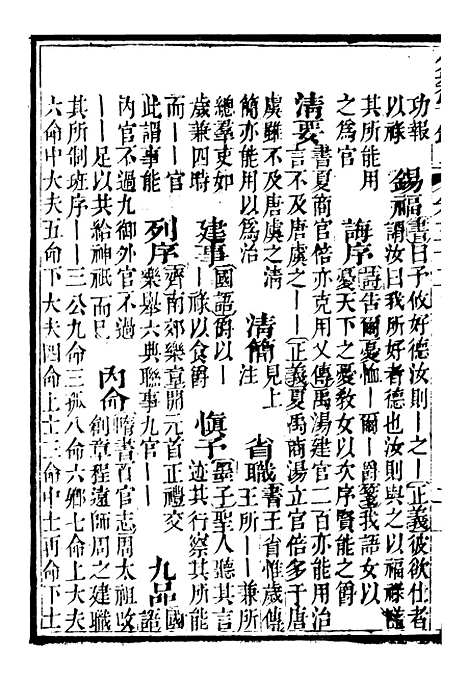 功報 錫福書曰予攸好德汝則一之一正義彼欲仕者
以祿 謂汝曰我所好者德也汝則與之以福祿
其所能用 誨序詩告爾憂恤一爾一爵箋我語女以
之爲官 憂天下之憂教女以次序賢能之爵
清要書夏商官倍亦克用乂傳禹湯建官二百亦能用治
言不及唐虞之一一正義夏禹商湯立官倍多于唐
虞雖不及唐虞之清 清簡見上 省職書王省惟歲傳
簡亦能用以爲治 注 王所一一兼所
總羣吏如 建事國語爵以一 愼予墨子聖人聽其言
歲兼四時 一祿以食爵 迹其行察其所能
而一一官 列序齊南郊樂章開元首正禮交 九品國語
此謂事能 樂舉六典聯事九官一一
內官不過九御外官不過 內命隋書百官志周太祖改
一一足以共給神祇而已 創章程遠師周之建職
其所制班序一一三公九命三孤八命六鄉七命上大夫
六命中大夫五命下大夫四命上士三命中士再命下士